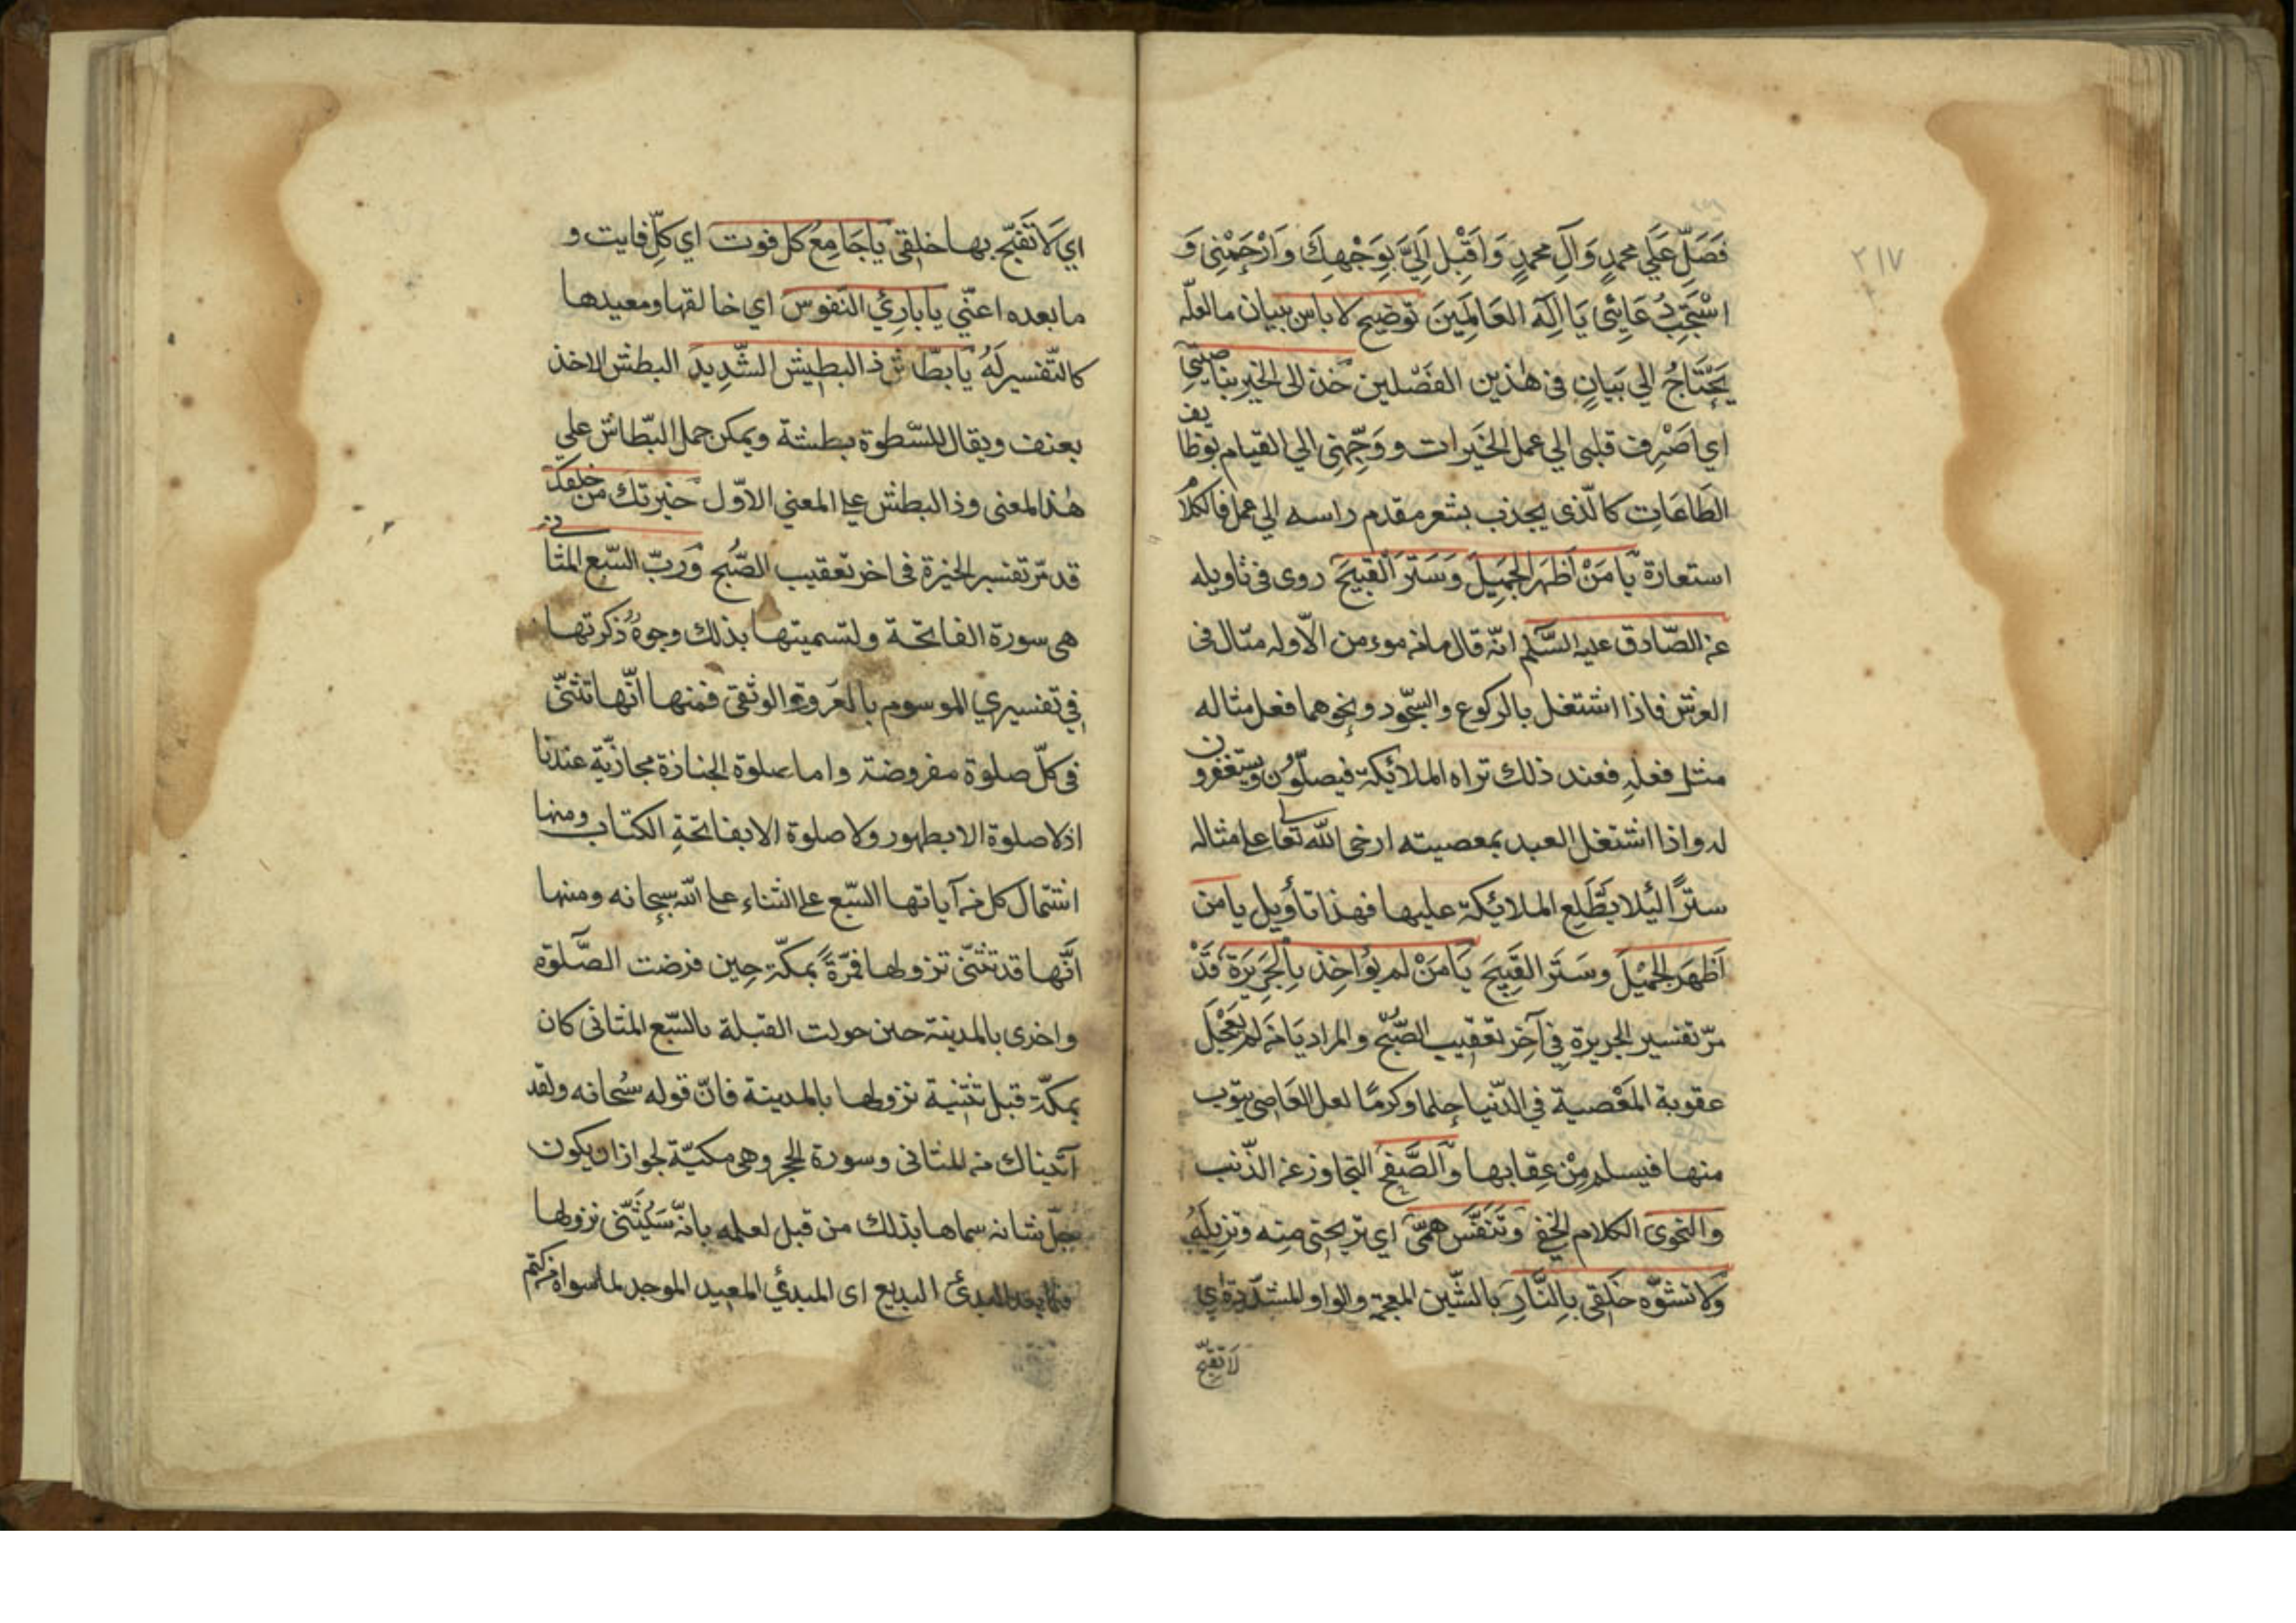 ٢١٧
فَصَلِّ عَلَي محمدٍ وَآلِ محمدٍ وَاَقْبِل اِلَيَّ بِوَجْهِكَ وَارْحَمْنِى وَ
اسْتَجِبْ دُعَائِى يَا اِلَهَ العَالَمِينَ توضيح لا باس ببيان ما لعلّه
يَحْتَاجُ الي بَيَانٍ فى هٰذين الفَصْلين خذ الى الخير بناصيتي
اي اَصْرِف قلبى الي عمل الخَيرات و وَجِّهنِى الي القيام بوظايف
الطَاعَاتِ كالّذى يجذب بشعر مقدم راسه الي عمل فالكلام
استعارة يَا مَنْ اَظهَر الجَمِيلَ وَسَتَرَ القَبِيحَ روى فى تاويله
عن الصّادق عليه السَّلم انّه قال ما من مومن الّا وله مثال فى
العرش فاذا اشتغل بالركوع والسّجود ونحوهما فعل مثاله
مثل فعلهِ فعند ذلك تراه الملائكة فيصلّون ويستغفرون
له واذا اشتغل العبد بمعصيته ارخى الله تعالى على مثاله
سترًا لئلا يَطَّلِع الملائكة عليها فهذا تأويل يا من
اَظهَر الجَمْيلَ وسَتَر القَبِيحَ يَا مَنْ لم يُوَاخِذ بِالجَرِيرَةِ قَدْ
مرّ تفسير الجريرة فِي آخِر تعقيب الصُّبْح والمراد يَا من لم يُعَجِّل
عقوبة المَعْصية في الدّنيا حلما وكرمًا لعل العَاصى يتوب
منها فيسلم مِنْ عِقابها وَالصَّفح التجاوز عن الذّنب
والنّجوى الكلام الخفي وتَنَفَّس همّى اي تريحنى منه وتزيلهُ
وَلَا تشوّه خَلقى بِالنَّارِ بالشّين المعجمة والواو المشدّدة اي
لا تقبّح
اي لَا تَقبّح بها خلقى يَا جَامِعُ كل فوت اي كلّ فايت و
ما بعده اعنّي يا بارِئُ النفوس اي خالقها ومعيدها
كالتّفسير لَهُ يَا بَطّاش ذ البطيش الشّدِيد البطش الاخذ
بعنف ويقال للسّطوة بطشة ويمكن حمل البّطاش علي
هٰذا المعنى وذ البطش علي المعني الاوّل خيرتك من خلقك
قد مرّ تفسير الخيرة فى اخر تعقيب الصُّبح وَرَبّ السّبع المثانى
هى سورة الفاتحة ولتسميتها بذلك وجوهٌ ذكرتها
فِي تفسيري الموسوم بالعروة الوثقى فمنها انّها تثنّى
فى كلّ صلوة مفروضة واما صلوة الجنازة مجازيّة عندنا
اذ لا صلوة الا بطهور ولا صلوة الا بفاتحةِ الكتاب ومنها
اشتمال كل من آياتها السّبع على الثناء على الله سبحانه ومنها
انَّها قد تثنّى نزولها فمرّةً بمكّة حِين فرضت الصَّلوة
واخرى بالمدينة حين حولت القبلة بالسّبع المثانى كان
بمكّة قبل تثنية نزولها بالمدينة فانّ قوله سُبحانه ولقد
آتيناك من المثانى وسورة الحجر وهى مكيّة لجواز ان يكون
جلّ شانه سماها بذلك من قبل لعلمه بانّه سَيُثَنّى نزولها
البديع اى المبدئُ المعيد الموجد لما سواه